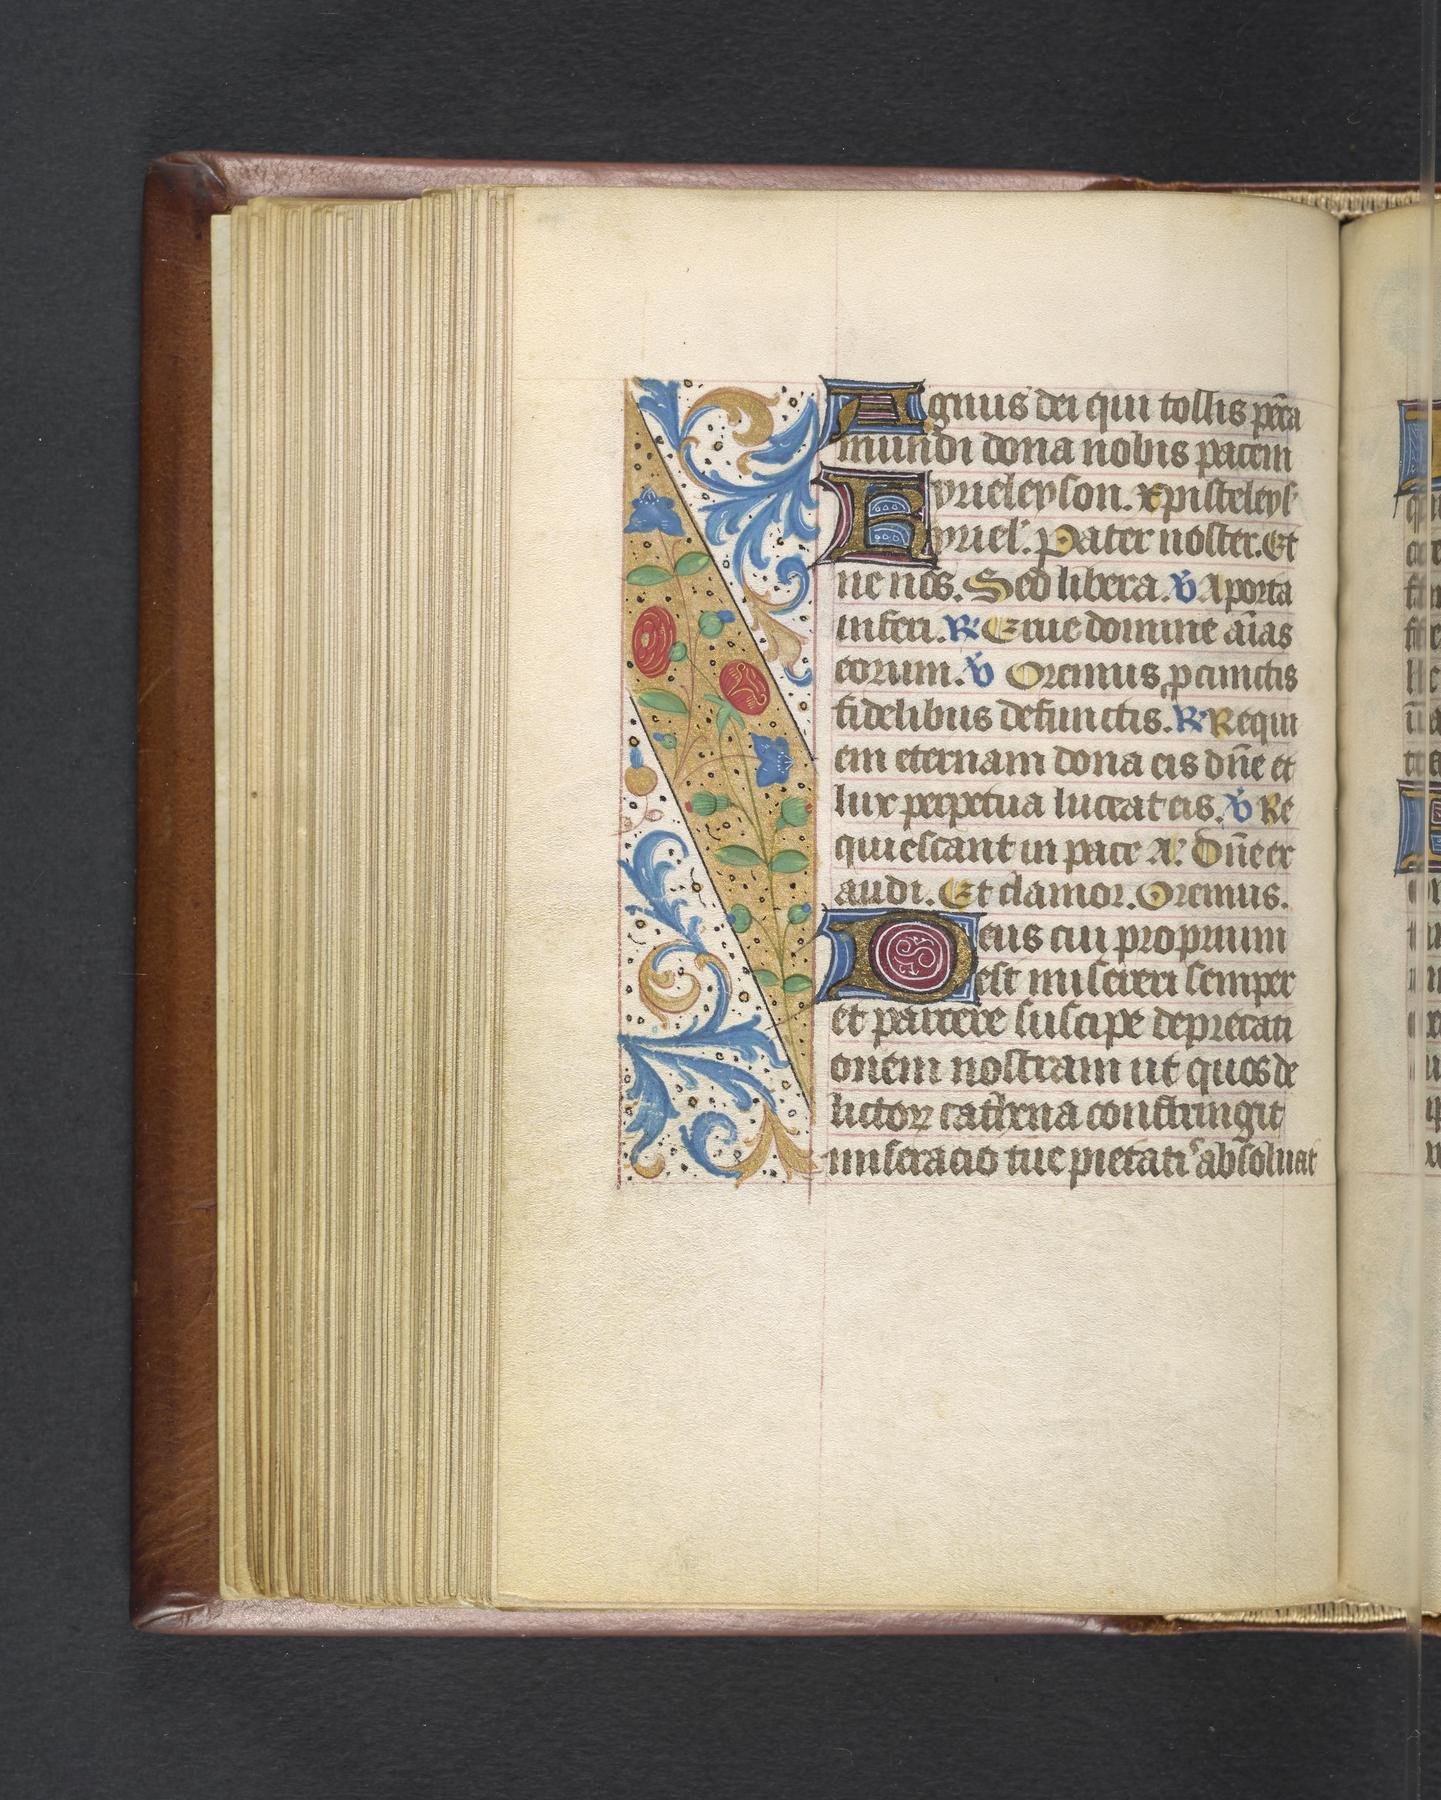 Agnus dei qui tollis pccā
mundi dona nobis pacem
Kyrieleyson. xp̄isteleys̄
kyriel̄. Pater noster. Et
ne nos. Sed libera. ℣ A porta
inferi. ℟ Erue domine aīas
eorum. ℣ Oremus, p cunctis
fidelibus defunctis. ℟ Requi
em eternam dona eis dn̄e et
lux perpetua luceat eis. ℣ Re
quiescant in pace A: Dn̄e ex
audi. Et clamor. Oremus.
Deus cui proprium
est misereri semper
et parcere suscipe deprecati
onem nostram ut quos de
lictoꝝ cathena constringit
miseracio tue pietatis absoluat